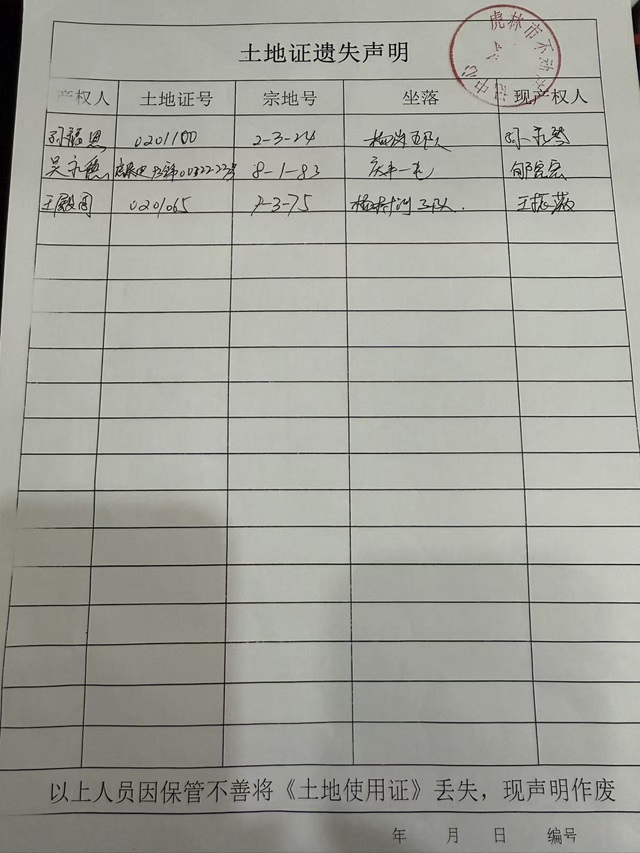 土地证遗失声明
虎林市不动
中心
产权人 土地证号 宗地号 坐落 现产权人
孙福恩 0201100 2-3-24 五队
吴永德 00322-22号 8-1-83 庆丰一屯
王殿 0201065 2-3-75 三队. 王
以上人员因保管不善将《土地使用证》丢失，现声明作废
年 月 日 编号